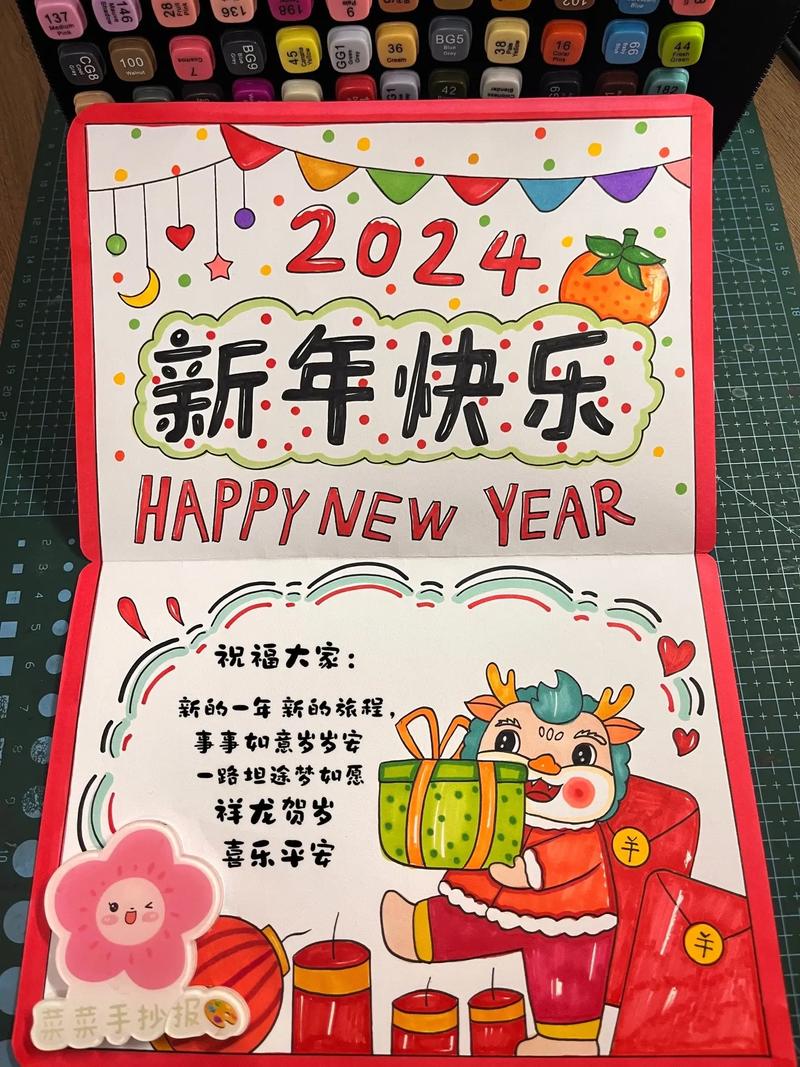 137 Medium Pink
146
28 Fruit Pink
136
196
9
CG8
100 Walnut
7 Cosmos
BG9
45 Canaria Yellow
GG1 Green Grey
36 Cream
BG5 Blue Grey
38
16 Coral Pink
66 Baby Blue
44 Fresh Green
42
Colorless Blender
182
2024
新年快乐
HAPPY NEW YEAR
祝福大家：
新的一年 新的旅程，
事事如意岁岁安
一路坦途梦如愿
祥龙贺岁
喜乐平安
羊
羊
菜菜手抄报